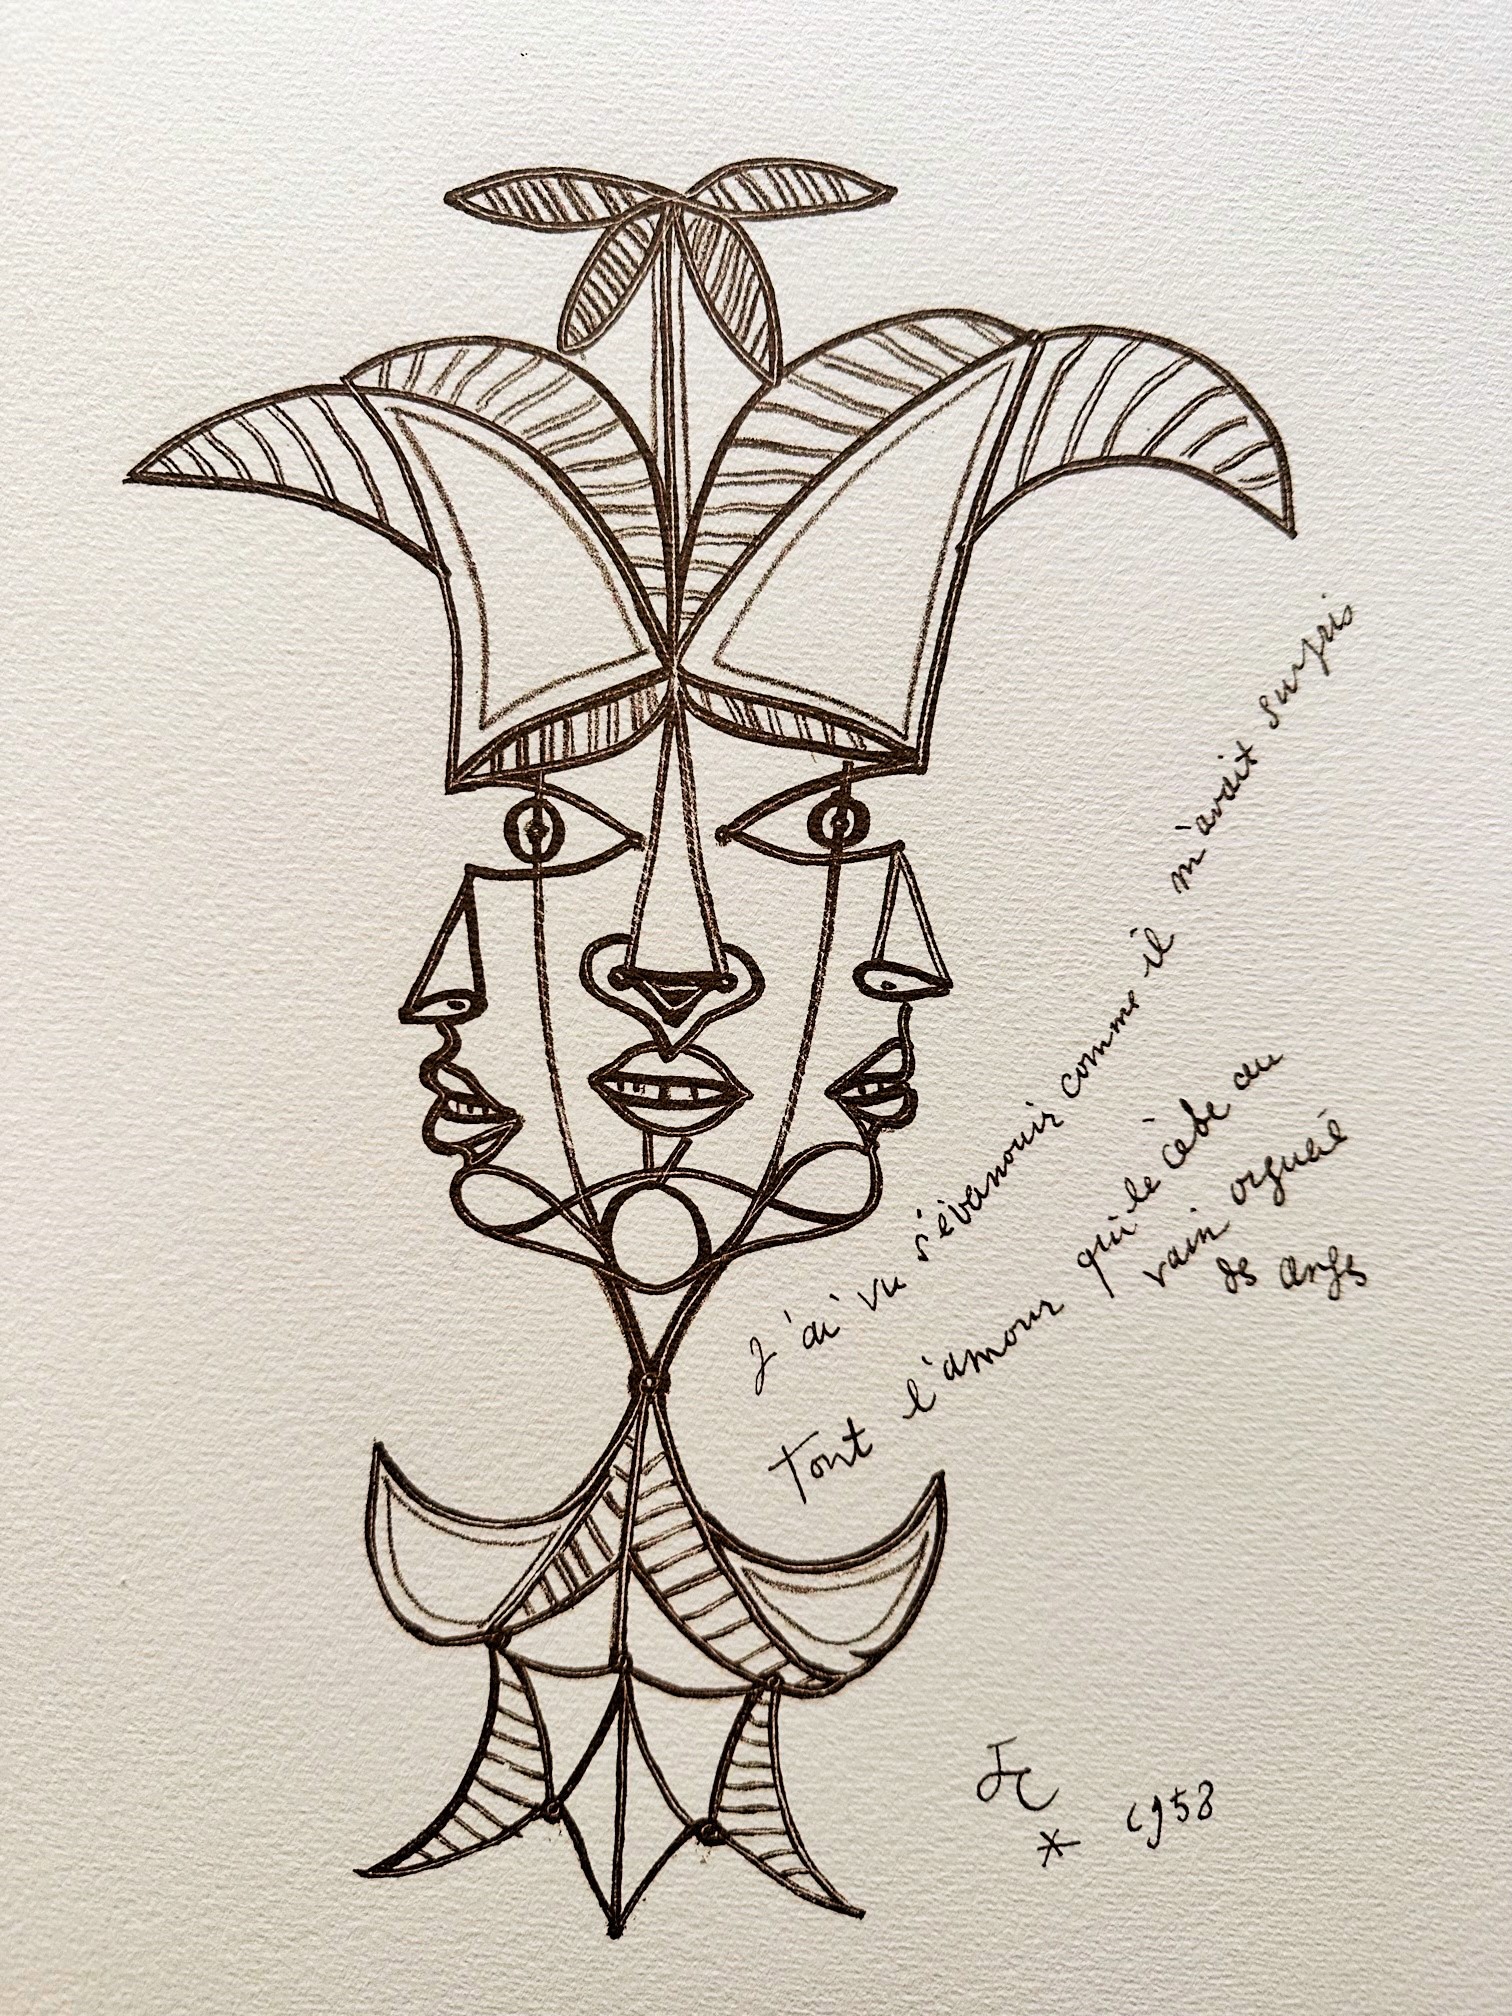 J'ai vu s'évanouir comme il m'avait surpris
Tout l'amour qui le cède au
vain orgueil
des anges
JC
* 1958